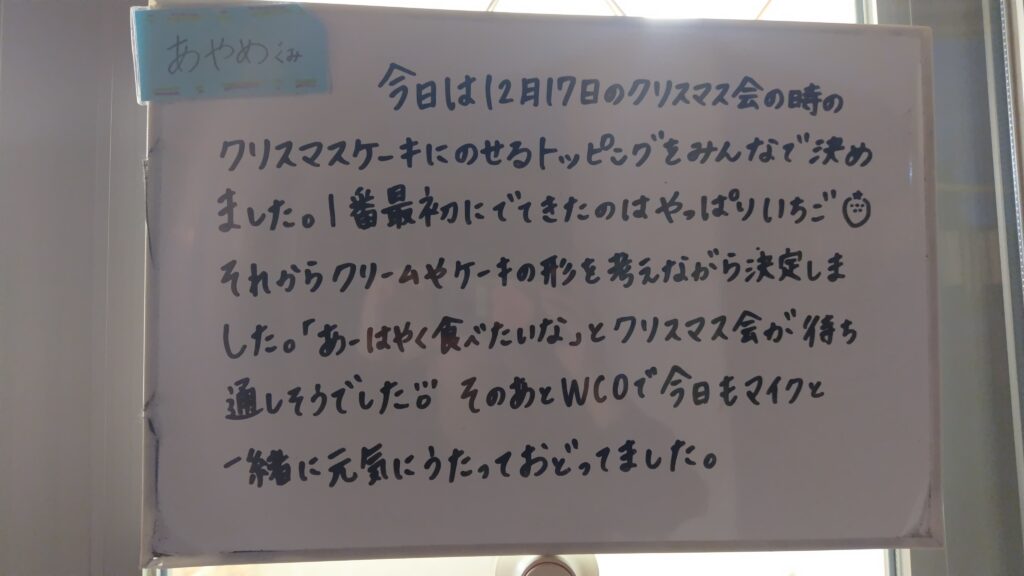 あやめぐみ
今日は12月17日のクリスマス会の時の
クリスマスケーキにのせるトッピングをみんなで決め
ました。1番最初にでてきたのはやっぱりいちご
それからクリームやケーキの形を考えながら決定しま
した。「あーはやく食べたいな」とクリスマス会が待ち
通しそうでした そのあとWCOで今日もマイクと
一緒に元気にうたっておどってました。